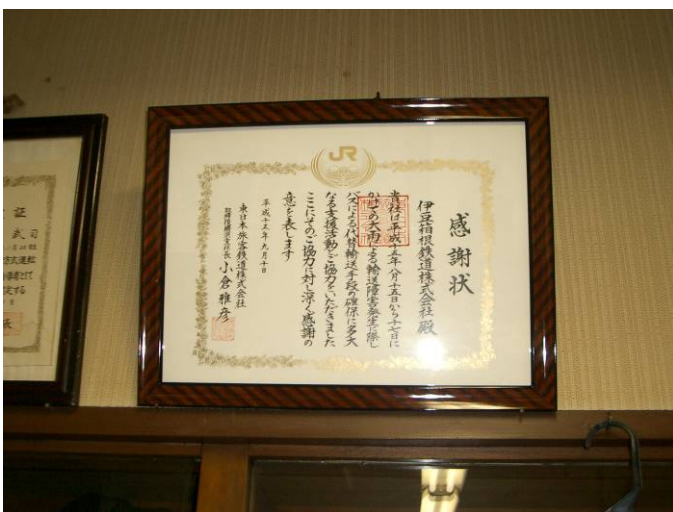 JR
感謝状
伊豆箱根鉄道株式会社殿
貴社は平成十五年八月十五日から十七日に
かけての大雨による輸送障害発生に際し
バスによる代替輸送手段の確保に多大
なる支援活動とご協力をいただきました
ここにそのご協力に対し深く感謝の
意を表します
平成十五年九月十日
東日本旅客鉄道株式会社
取締役横浜支社長 小倉雅彦
証